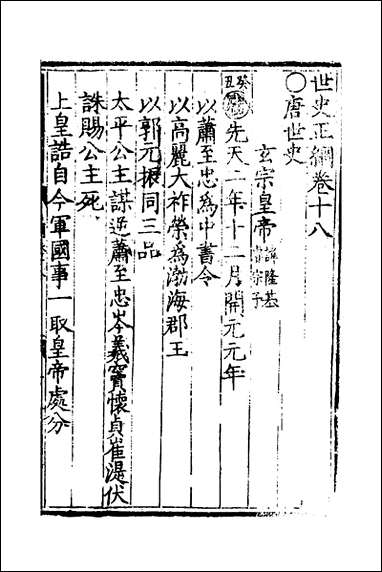 世史正綱卷十八
〇唐世史
玄宗皇帝 諱隆基睿宗子
癸丑 先天二年十二月開元元年
以蕭至忠為中書令
以高麗大祚榮為渤海郡王
以郭元振同三品
太平公主謀逆蕭至忠岑羲竇懷貞崔湜伏
誅賜公主死
上皇誥自今軍國事一取皇帝處分